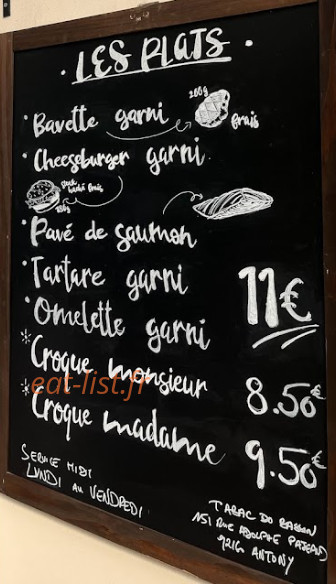 · LES PLATS ·
· Bavette garni
200g
frais
· Cheeseburger garni
steak
haché frais
180g
· Pavé de saumon
· Tartare garni
11€
· Omelette garni
* Croque monsieur
8.50€
eat-list.fr
* Croque madame
9.50€
SERVICE MIDI
LUNDI AU VENDREDI
TABAC DU
151 RUE ADOLPHE PAJEAUD
9216 ANTONY